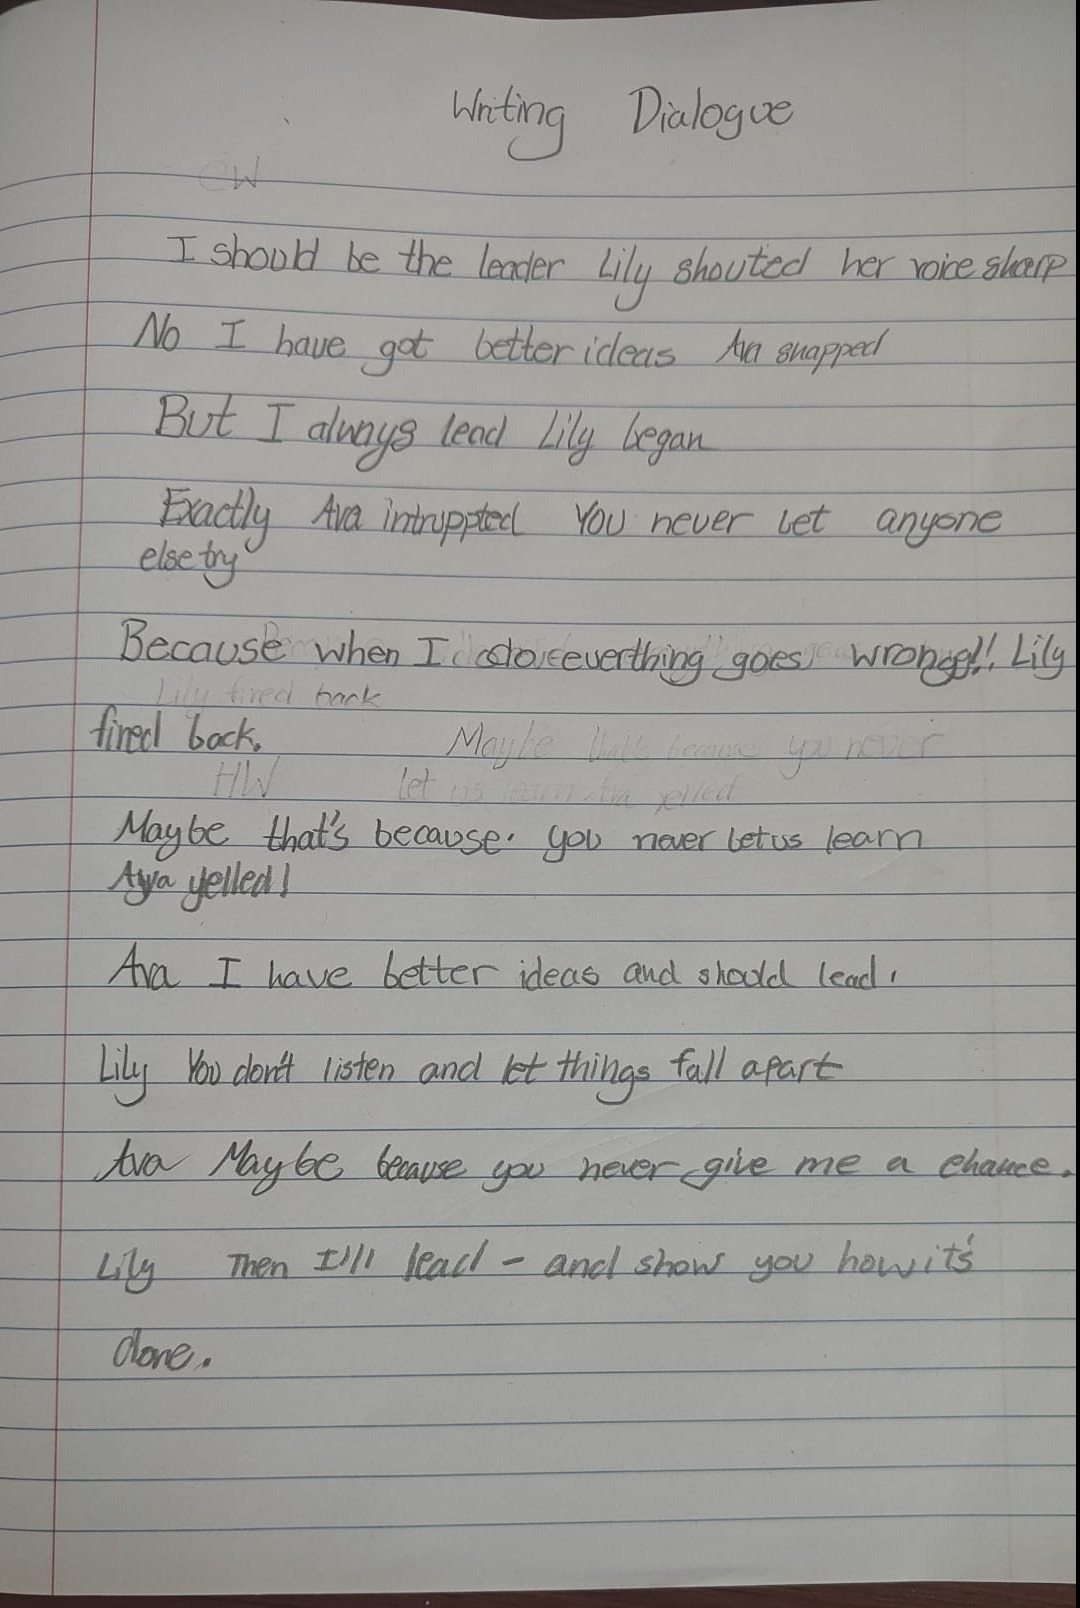 Writing Dialogue
CW
I should be the leader Lily shouted her voice sharp
No I have got better ideas Ava snapped
But I always lead Lily began
Exactly Ava intruppted You never let anyone
else try
Because when I do everthing goes wrong!! Lily
Lily fired back
fired back.
Maybe that's because you never
HW
let us learn Ava yelled
Maybe that's because. you never let us learn
Ava yelled!
Ava I have better ideas and should lead.
Lily You don't listen and let things fall apart
Ava Maybe because you never give me a chance.
Lily Then I'll lead - and show you how it's
done.